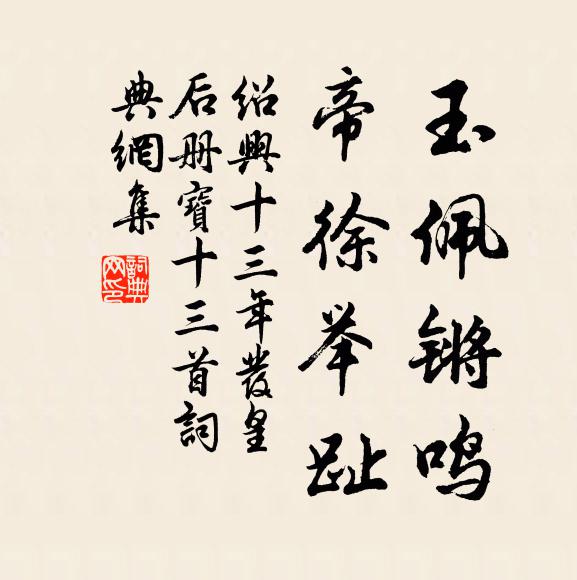 玉佩锵鸣
帝徐举趾
绍興十三年發皇
后册寳十三首詞
典網集
詞典網印